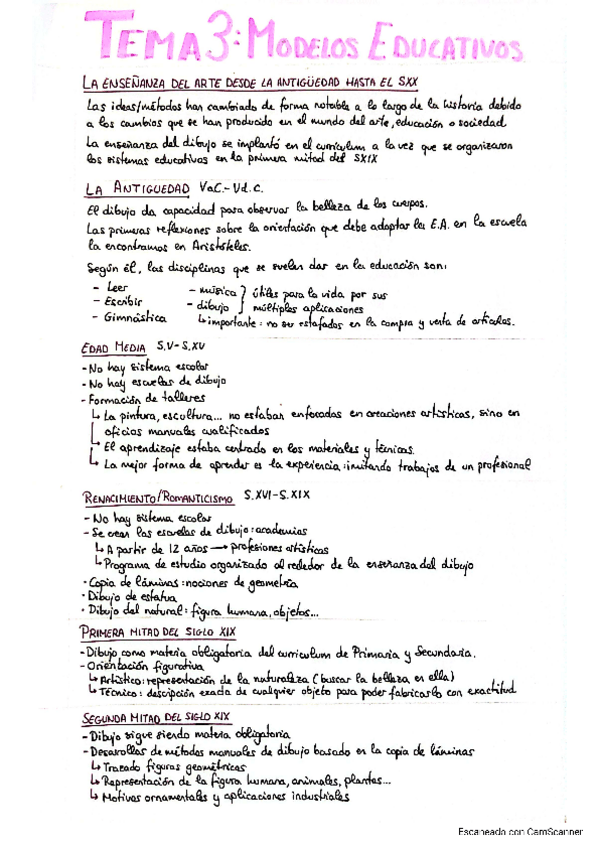 TEMA 3: MODELOS EDUCATIVOS
LA ENSEÑANZA DEL ARTE DESDE LA ANTIGÜEDAD HASTA EL SXX
Las ideas/métodos han cambiado de forma notable a lo largo de la historia debido
a los cambios que se han producido en el mundo del arte, educación o sociedad
La enseñanza del dibujo se implantó en el curriculum a la vez que se organizaron
los sistemas educativos en la primera mitad del SXIX
LA ANTIGUEDAD VaC.-Vd.C.
El dibujo da capacidad para observar la belleza de los cuerpos.
Las primeras reflexiones sobre la orientación que debe adoptar la E.A. en la escuela
la encontramos en Aristóteles.
Según él, las disciplinas que se suelen dar en la educación son:
- Leer - música } útiles para la vida por sus
- Escribir - dibujo } múltiples aplicaciones
- Gimnástica ↳ importante: no ser estafados en la compra y venta de artículos.
EDAD MEDIA S.V-S.XV
- No hay sistema escolar
- No hay escuelas de dibujo
- Formación de talleres
↳ La pintura, escultura... no estaban enfocadas en creaciones artísticas, sino en
oficios manuales cualificados
↳ El aprendizaje estaba centrado en los materiales y técnicas.
↳ La mejor forma de aprender es la experiencia: imitando trabajos de un profesional
RENACIMIENTO/ROMANTICISMO S.XVI-S.XIX
- No hay sistema escolar
- Se crean las escuelas de dibujo: academias
↳ A partir de 12 años → profesiones artísticas
↳ Programa de estudio organizado alrededor de la enseñanza del dibujo
- Copia de láminas: nociones de geometría
- Dibujo de estatua
- Dibujo del natural: figura humana, objetos...
PRIMERA MITAD DEL SIGLO XIX
- Dibujo como materia obligatoria del curriculum de Primaria y Secundaria.
- Orientación figurativa
↳ Artístico: representación de la naturaleza (buscar la belleza en ella)
↳ Técnico: descipción exacta de cualquier objeto para poder fabricarlo con exactitud
SEGUNDA MITAD DEL SIGLO XIX
- Dibujo sigue siendo materia obligatoria
- Desarrollos de métodos manuales de dibujo basado en la copia de láminas
↳ Trazado figuras geométricas
↳ Representación de la figura humana, animales, plantas...
↳ Motivos ornamentales y aplicaciones industriales
Escaneado con CamScanner